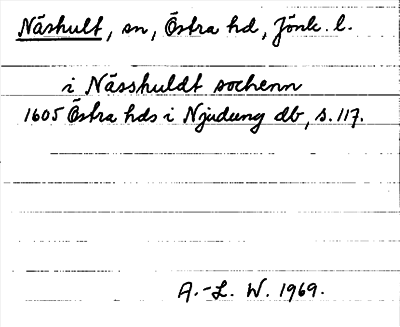 Näshult, sn, Östra hd, Jönk. l.
i Nässhuldt sochenn
1605 Östra hds i Njudung db, s. 117.
A.-L. W. 1969.